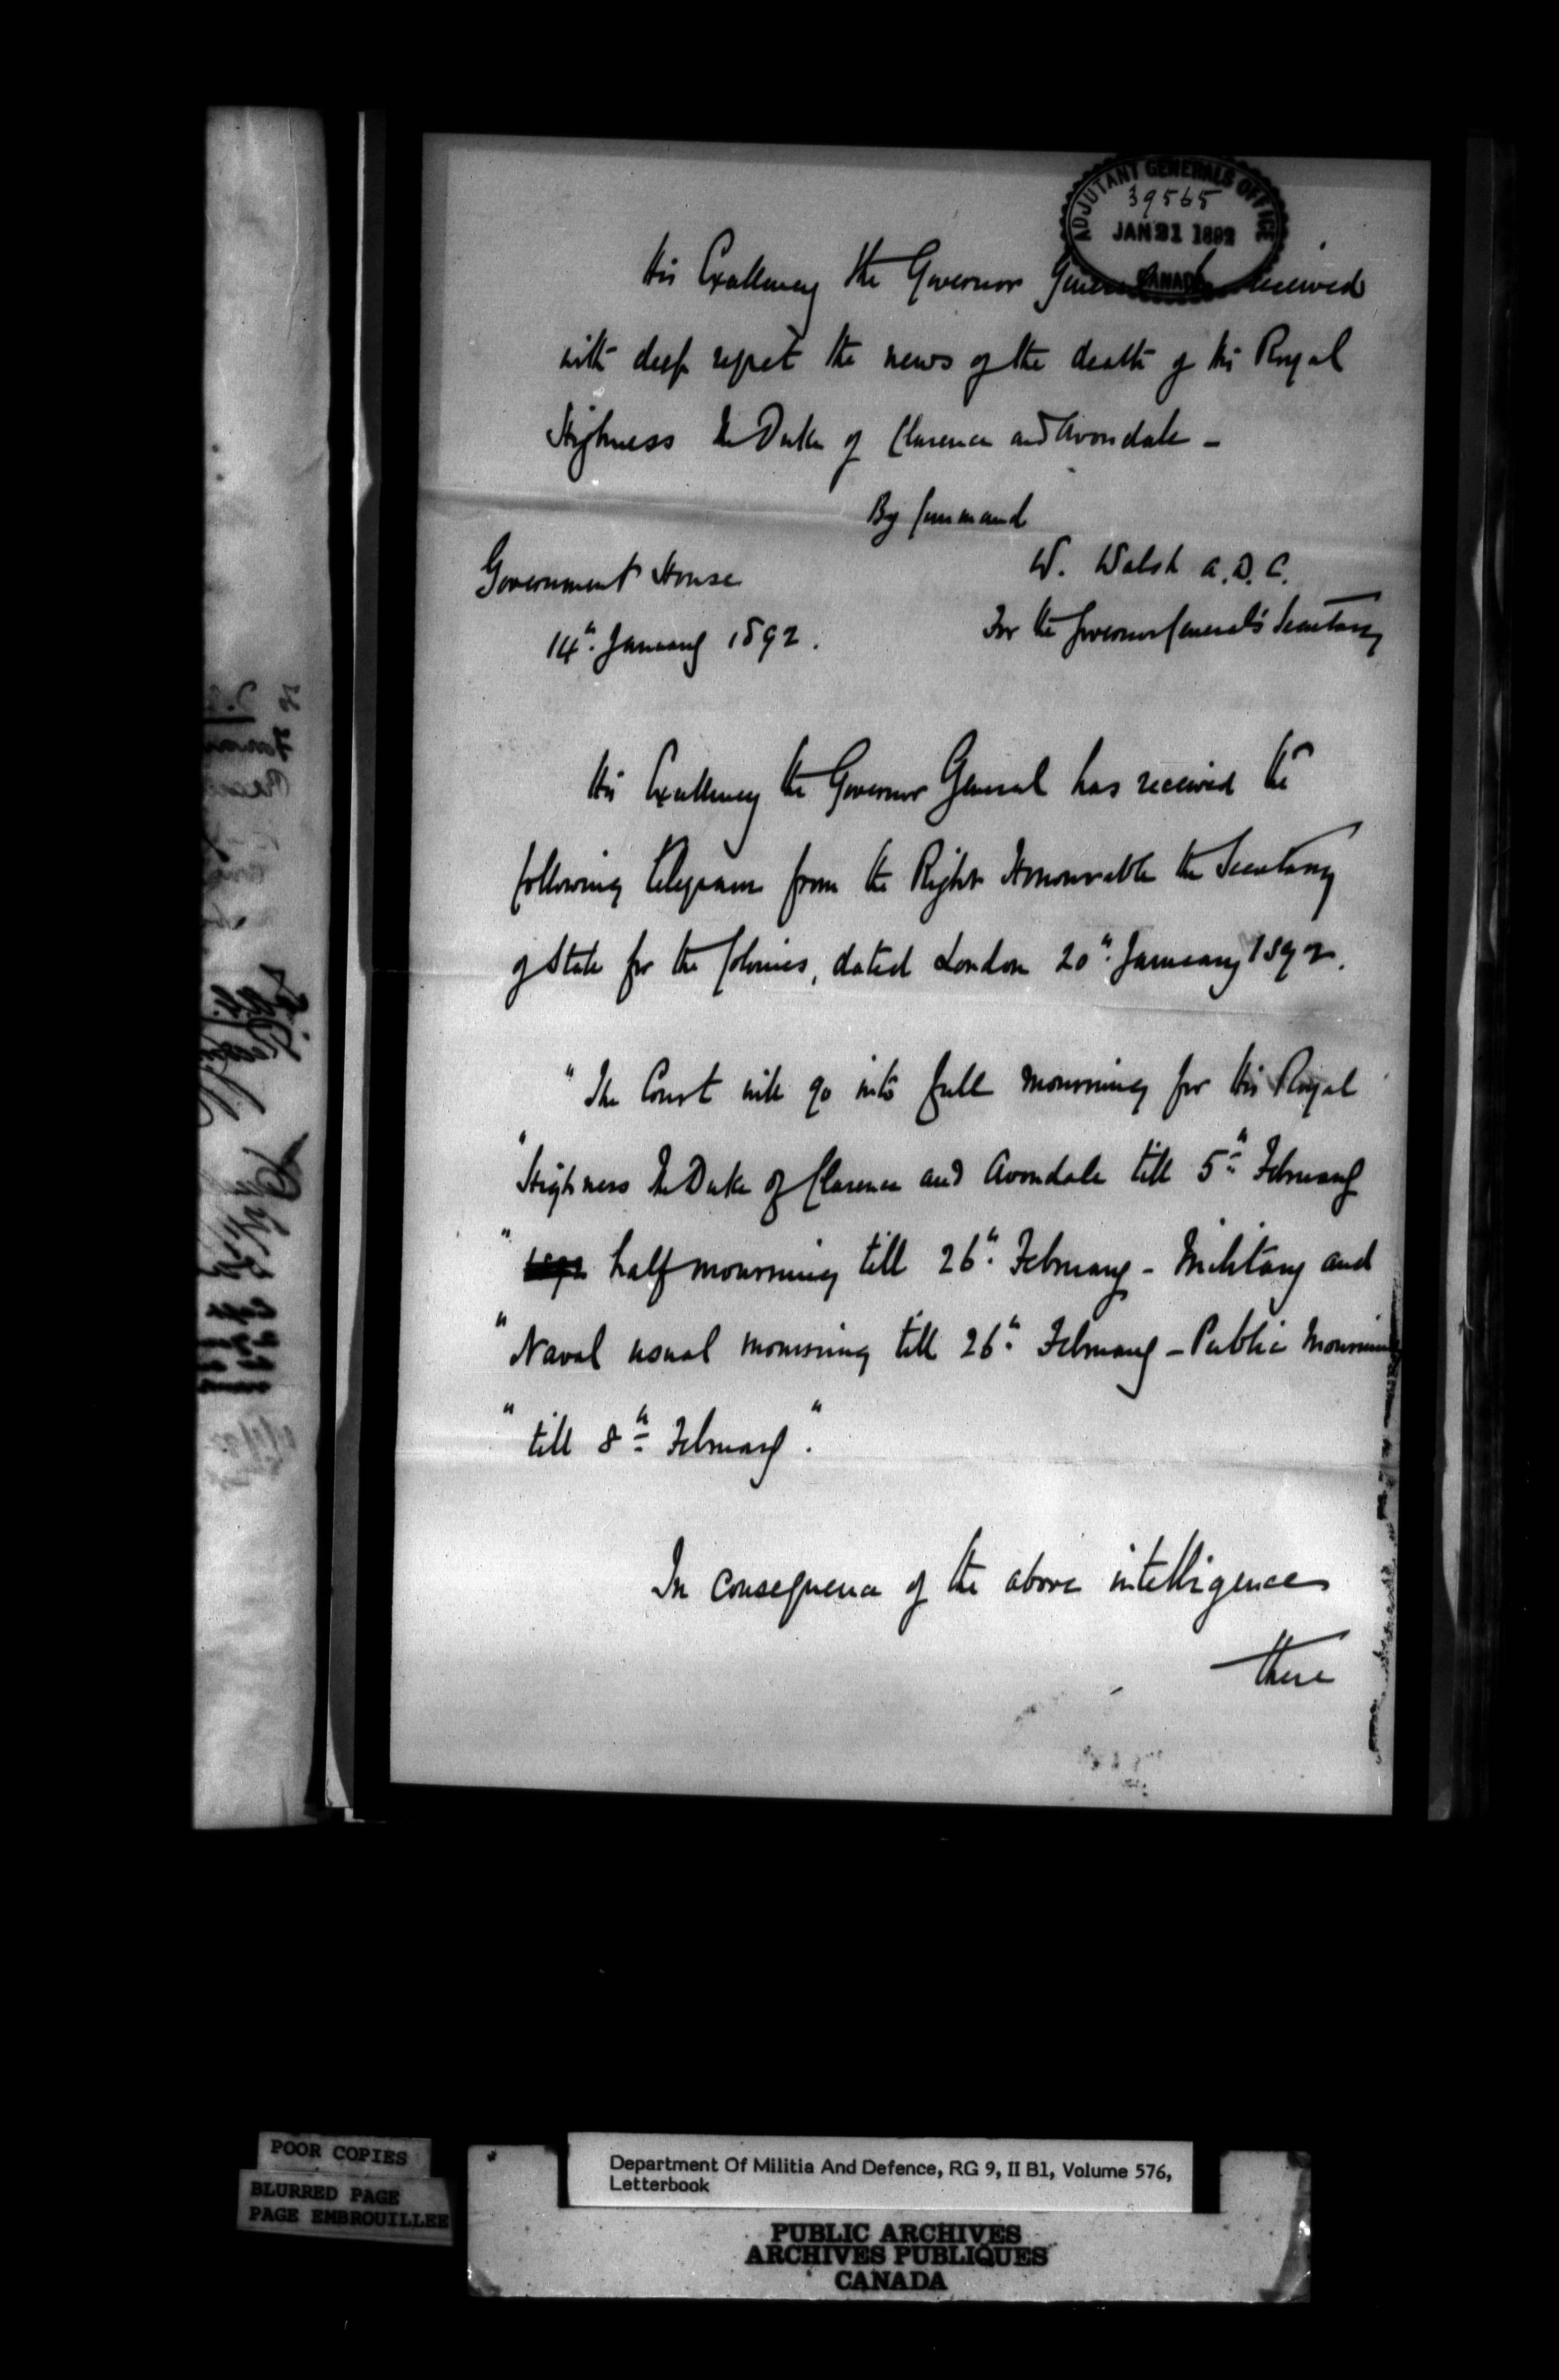 ADJUTANT GENERALS OFFICE
39565
JAN 21 1892
CANADA
His Excellency the Governor General has received
with deep regret the news of the death of His Royal
Highness The Duke of Clarence and Avondale -
By Command
W. Walsh A.D.C.
Government House
For the Governor General's Secretary
14th January 1892.
His Excellency the Governor General has received the
following telegram from the Right Honourable the Secretary
of State for the Colonies, dated London 20th January 1892.
"The Court will go into full mourning for His Royal
"Highness The Duke of Clarence and Avondale till 5th February
" 1892 half mourning till 26th February - Military and
"Naval usual mourning till 26th February - Public Mourning
"till 8th February."
In consequence of the above intelligence
there
POOR COPIES
BLURRED PAGE
PAGE EMBROUILLEE
Department Of Militia And Defence, RG 9, II B1, Volume 576,
Letterbook
PUBLIC ARCHIVES
ARCHIVES PUBLIQUES
CANADA